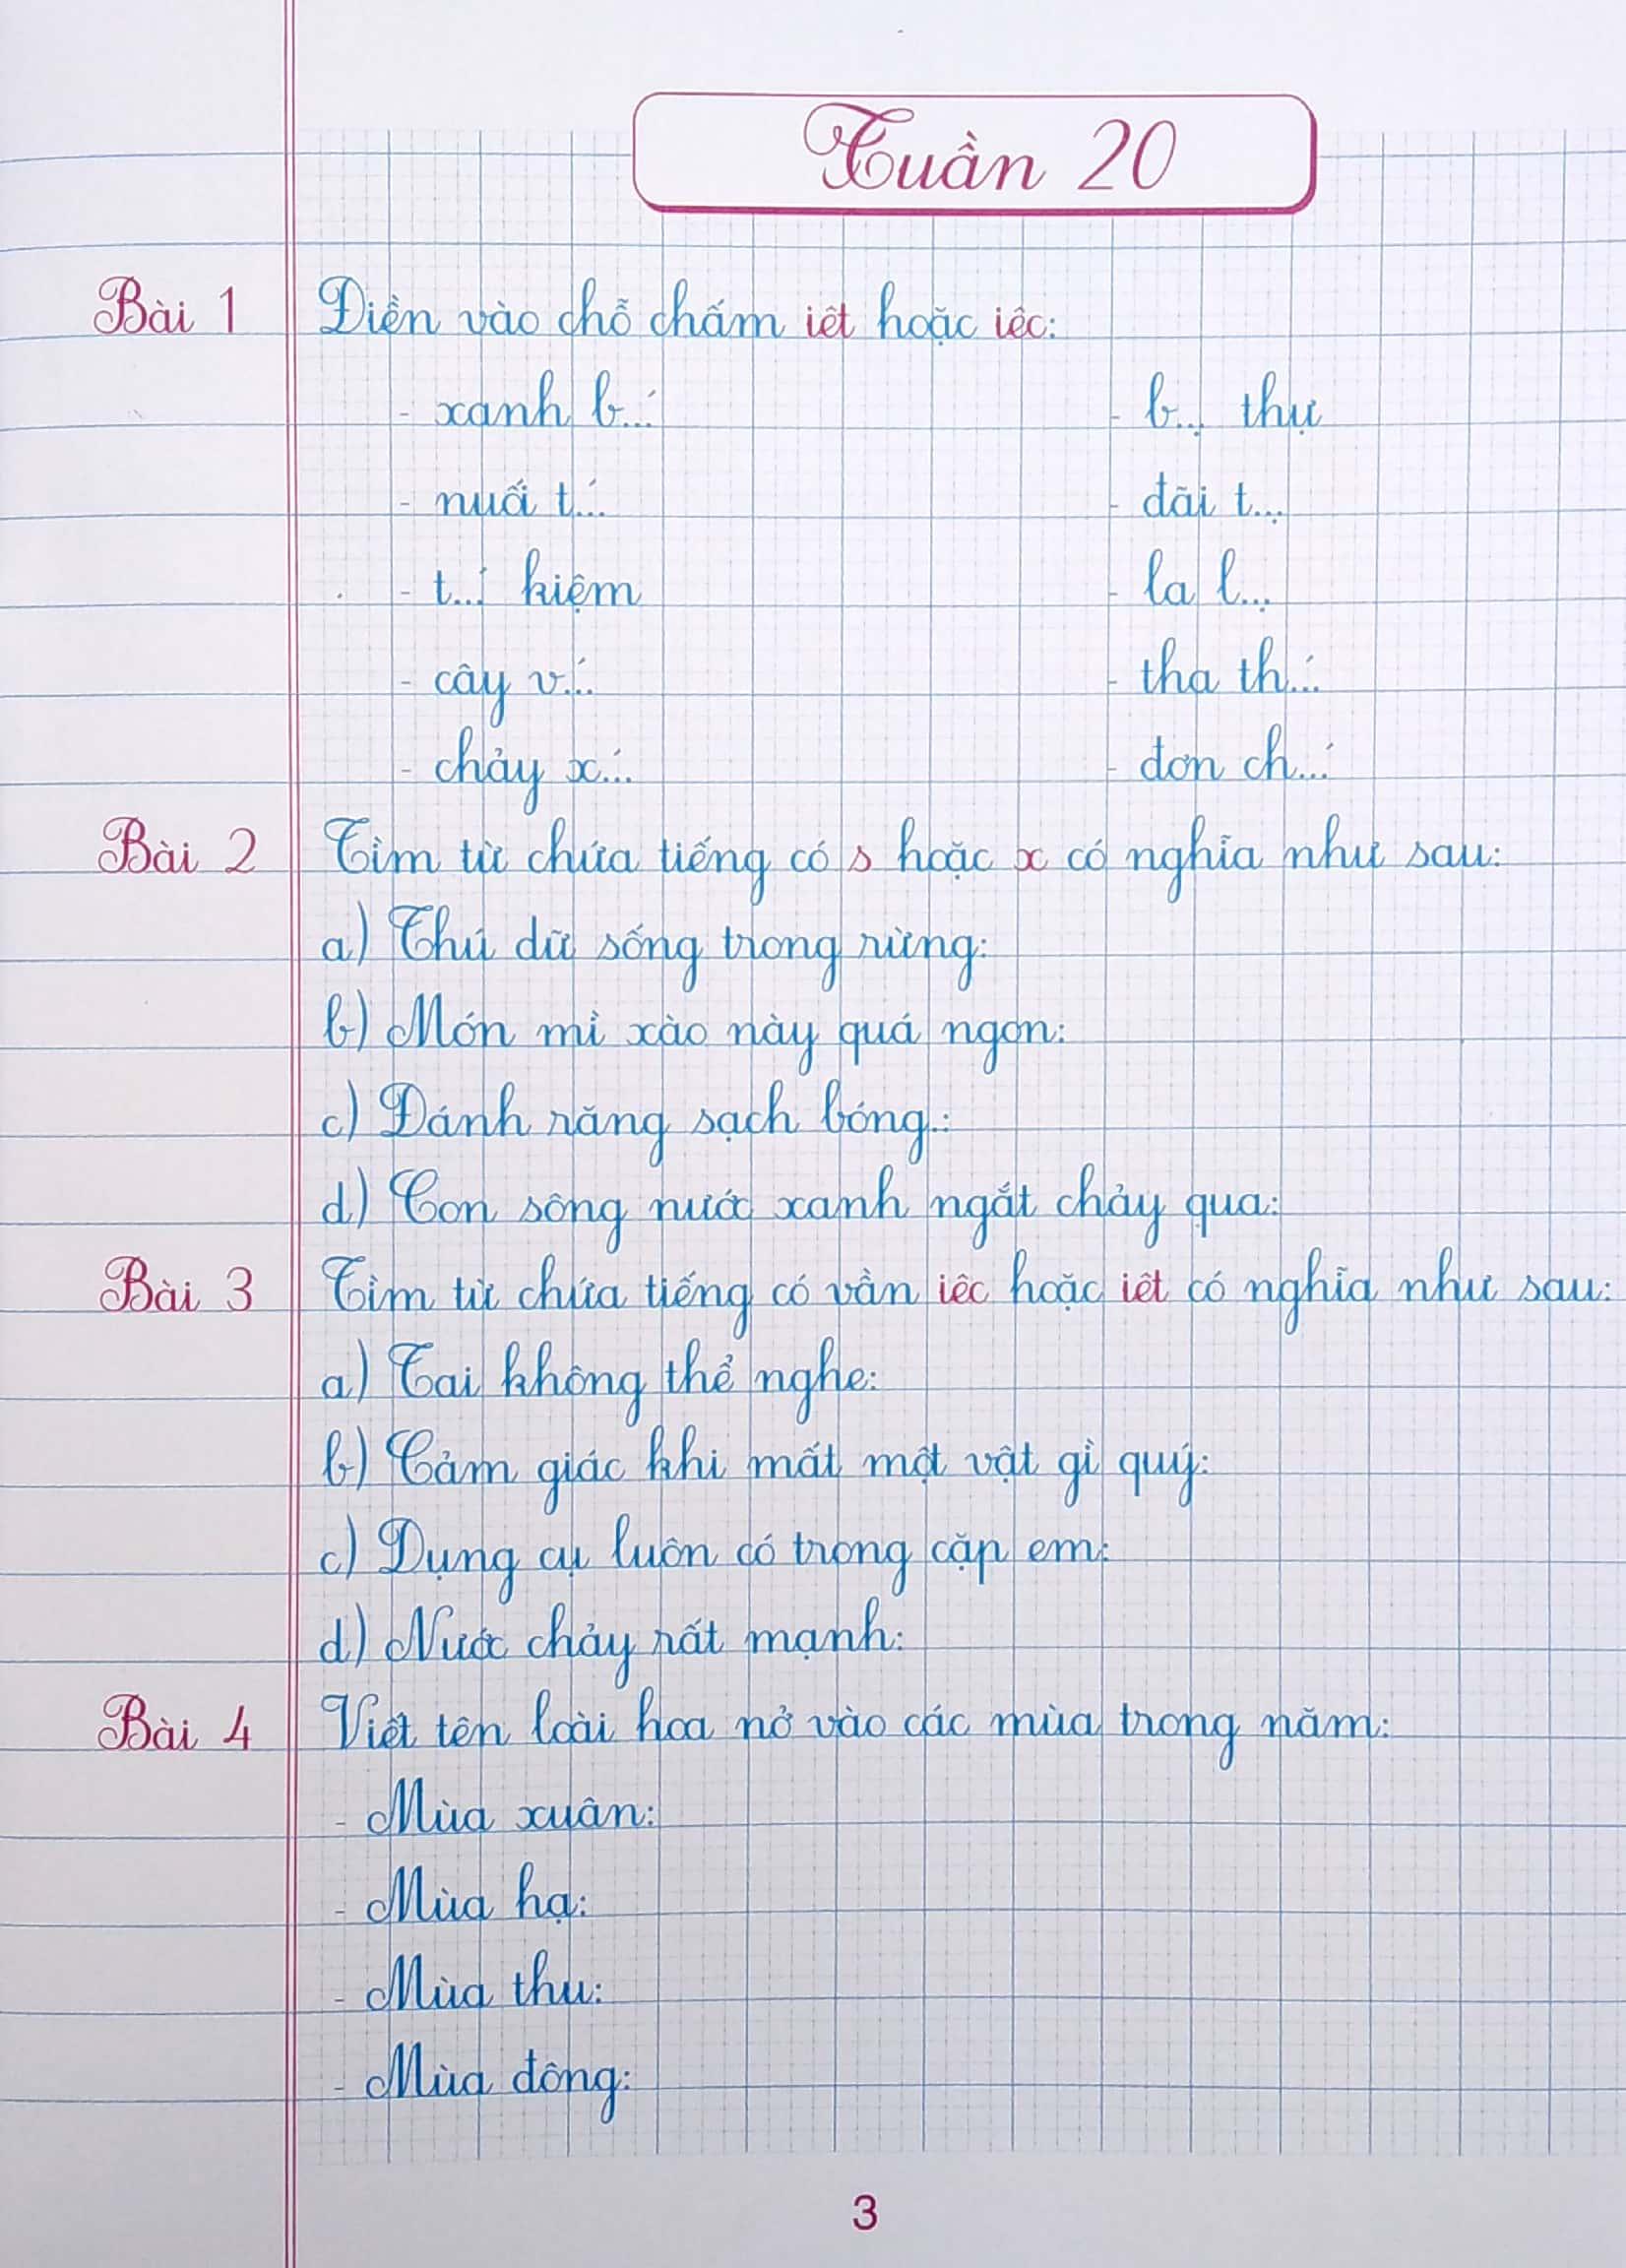 Tuần 20
Bài 1 Điền vào chỗ chấm iêt hoặc iêc:
- xanh b...́ - b...̣ thự
- nuối t...́ - dãi t...̣
- t...́ kiệm - la l...̣
- cây v...́ - tha th...́
- chảy x...́ - đơn ch...́
Bài 2 Tìm từ chứa tiếng có s hoặc x có nghĩa như sau:
a) Thú dữ sống trong rừng:
b) Món mì xào này quá ngon:
c) Đánh răng sạch bóng.:
d) Con sông nước xanh ngắt chảy qua:
Bài 3 Tìm từ chứa tiếng có vần iêc hoặc iêt có nghĩa như sau:
a) Tai không thể nghe:
b) Cảm giác khi mất một vật gì quý:
c) Dụng cụ luôn có trong cặp em:
d) Nước chảy rất mạnh:
Bài 4 Viết tên loài hoa nở vào các mùa trong năm:
- Mùa xuân:
- Mùa hạ:
- Mùa thu:
- Mùa đông:
3